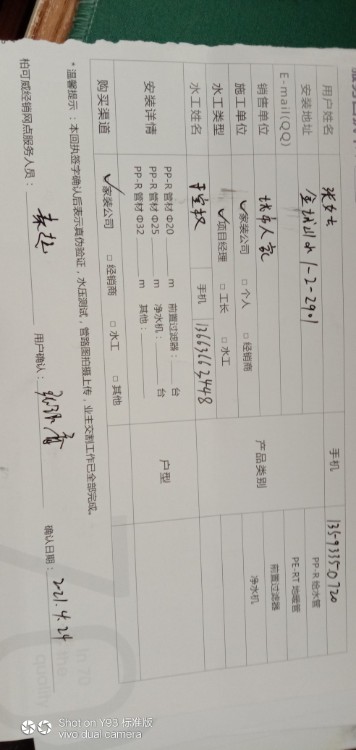 用户姓名 手机 13593350720
安装地址 1-2-2901
E-mail(QQ)
销售单位 产品类别 PP-R 给水管
PE-RT 地暖管
前置过滤器
净水机
施工单位 ✓家装公司 □ 个人 □ 经销商
水工类型 ✓项目经理 □ 工长 □ 水工
水工姓名 手机 13663663448
安装详情 PP-R 管材 Φ20 m 前置过滤器： 台 户型
PP-R 管材 Φ25 m 净水机： 台
PP-R 管材 Φ32 m 其他：
购买渠道 ✓家装公司 □ 经销商 □ 水工 □ 其他
*温馨提示：本回执签字确认后表示真伪验证，水压测试，管路图拍摄上传，业主交割工作已全部完成。
柏可威经销网点服务人员： 用户确认： 确认日期： 2021.4.24
Shot on Y93 标准版
vivo dual camera